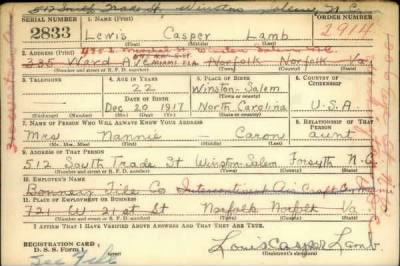 512 South Trade St. Winston Salem, N.C.
SERIAL NUMBER 1. NAME (Print) ORDER NUMBER
2833 Lewis Casper Lamb 2914
(First) (Middle) (Last)
2. ADDRESS (Print)
335 Ward Ave MIAMI FLA Norfolk Norfolk Va.
(Number and street or R. F. D. number) (Town) (County) (State)
3. TELEPHONE 4. AGE IN YEARS 5. PLACE OF BIRTH 6. COUNTRY OF CITIZENSHIP
22 Winston-Salem
(Town or county)
DATE OF BIRTH
Dec 20 1917 North Carolina U.S.A
(Exchange) (Number) (Mo.) (Day) (Yr.) (State or country)
7. NAME OF PERSON WHO WILL ALWAYS KNOW YOUR ADDRESS 8. RELATIONSHIP OF THAT PERSON
Mrs Nannie Caron aunt
(Mr., Mrs., Miss) (First) (Middle) (Last)
9. ADDRESS OF THAT PERSON
512 South Trade St Winston-Salem Forsyth N.C
(Number and street or R. F. D. number) (Town) (County) (State)
10. EMPLOYER'S NAME
Tile Co
11. PLACE OF EMPLOYMENT OR BUSINESS
721 W 21st St Norfolk Norfolk Va
(Number and street or R. F. D. number) (Town) (County) (State)
I AFFIRM THAT I HAVE VERIFIED ABOVE ANSWERS AND THAT THEY ARE TRUE.
REGISTRATION CARD
D. S. S. Form 1
Louis Casper Lamb
(Registrant's signature)
See File